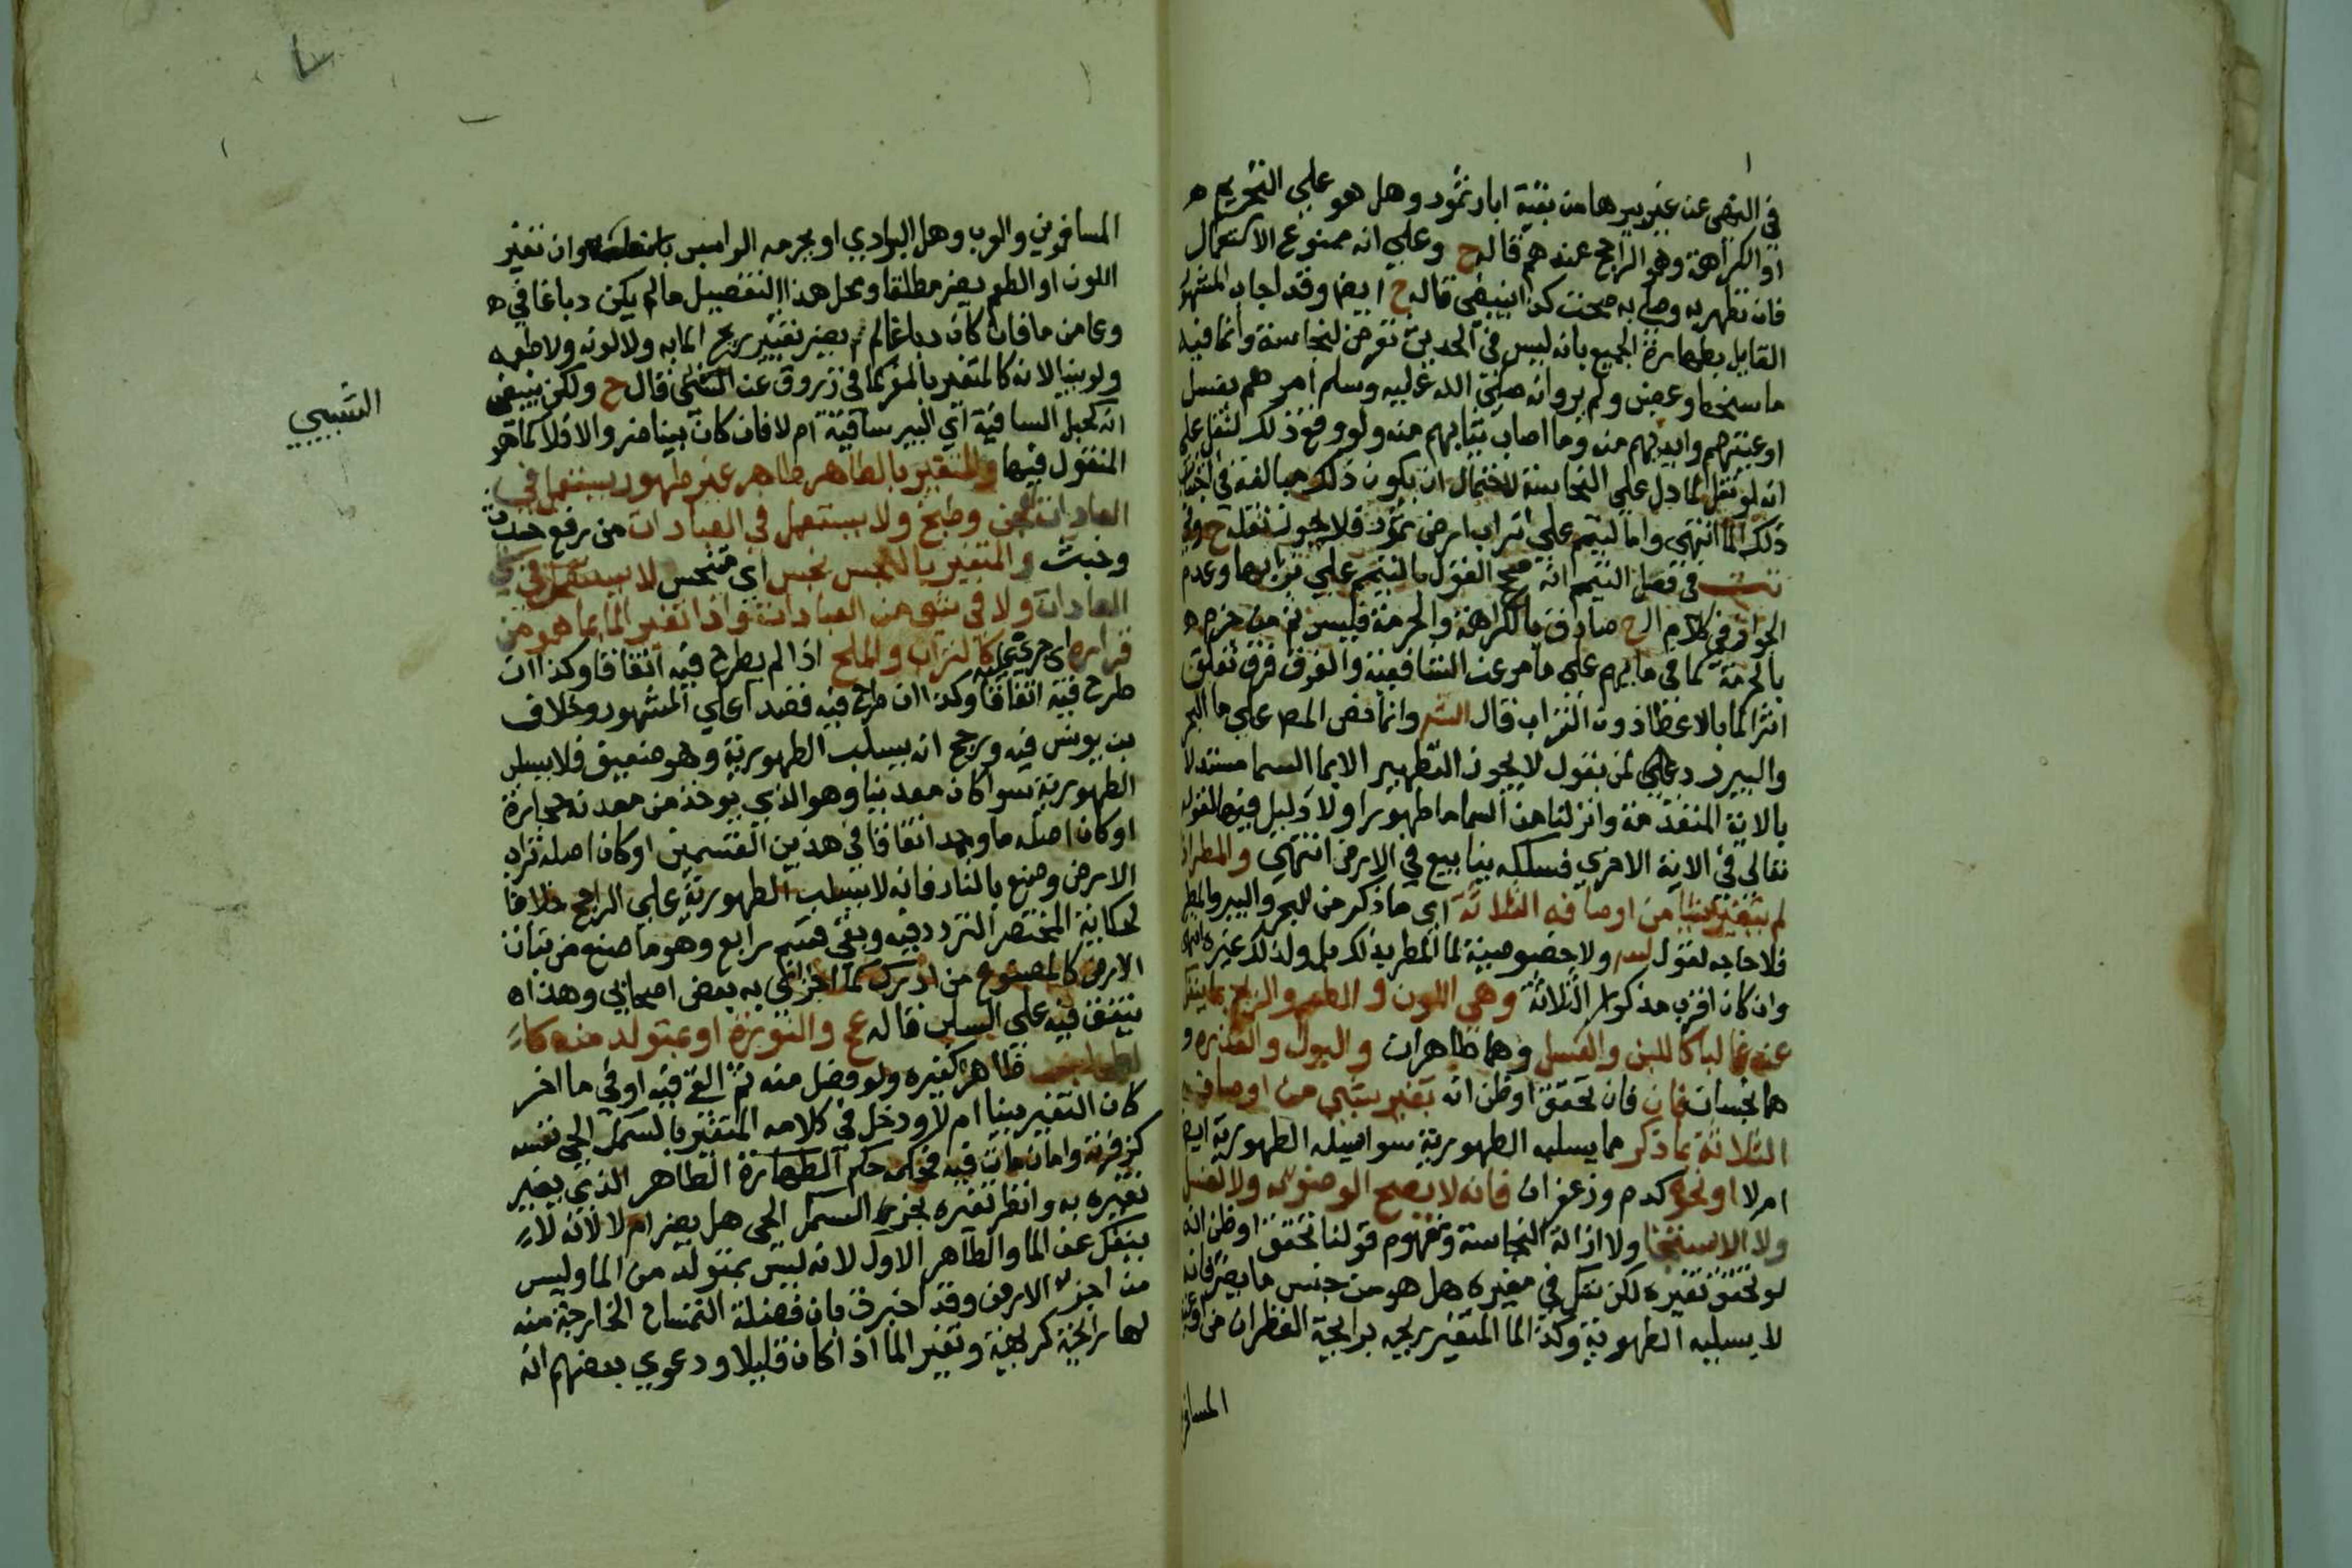 في النهي عن غير بيرها من بقية ابار ثمود وهل هو علي التحريم
او الكراهة وهو الراجح عندهم قاله ح وعلي انه ممنوع الاستعمال
فان تطهر به وصلي به صحت كذا ينبغي قاله ح ايضا وقد اجاب المشهور
القايل بطهارة الجميع بانه ليس في الحديث تعرض لنجاسة وانما فيه
ولم يرو انه صلي الله عليه وسلم امرهم بغسل
اوعيتهم وايديهم منه وما اصاب ثيابهم منه ولو وقع ذلك لنقل علي
انه لو نقل لما دل علي النجاسة لاحتمال ان يكون ذلك مبالغة في اجتناب
ذلك الما انتهي واما التيمم علي تراب ارض ثمود فلا يجوز نقله ح
تت في فصل التيمم انه صحح القول بالتيمم علي ترابها وعدم
الجواز في كلام ح صادق بالكراهة والحرمة فليس ثم من جزم
بالحرمة كما في مايهم علي ما مر عن الشافعية والفرق فرق تعلق
اثر الما بالاعضا دون التراب قال الش وانما نص المص علي ما البحر
والبير رد علي من يقول لا يجوز التطهير الا بما السما مستدلا
بالاية المتقدمة وانزلنا من السما ما طهورا ولا دليل فيها لقوله
تعالي في الاية الاخري فسلكه ينابيع في الارض انتهي والمطر اذا
لم يتغير شيا من اوصافه الثلاثة اي ما ذكر من البحر والبير والمطر
فلا حاجه لقول ولا خصوصية لما المطر بذلك بل ولذلك غيره
وان كان اقرب مذكور الثلاثة وهي اللون والطعم والريح بما ينفك
عنه غالبا كاللبن والعسل وهما طاهران والبول والعذرة و
هما نجسان فان تحقق او ظن انه تغير شي من اوصافه
الثلاثة بما ذكر مما يسلبه الطهورية سوا
ام لا او نحو كدم وزعفران فانه لا يصح الوضو به ولا الغسل
ولا الاستنجا ولا ازالة النجاسة ومفهوم قولنا تحقق او ظن انه
لو تحقق تغيره لكن شك في مغيره هل هو من جنس ما يضر فانه
لا يسلبه الطهورية وكذا الما المتغير ريحه برايحة القطران من
المسافر
المسافرين والعرب وهل البوادي او بجرمه الراسب وان تغير
اللون او الطعم يضر مطلقا ومحل هذا التفصيل ما لم يكن دباغا في
وعا من ما فان كان دباغا لم يضر تغير ريح الما به ولا لونه ولا طعمه
ولو بينا لانه كالمتغير بالمقر كما في زروق عن الشبيبي قال ح ولكن ينبغي
انه كحبل السانية اي البير سانية ام لا فان كان بينا ضر والا فلا كما هو
المنقول فيها والمتغير بالطاهر طاهر غير طهور يستعمل في
العادات كعجن وطبخ ولا يستعمل في العبادات من رفع حدث
وخبث والمتغير بالنجس نجس اي متنجس لا يستعمل في شي
العادات ولا في شي من العبادات واذا تغير الما بما هو من
قراره اي كالتراب والملح اذا لم يطرح فيه اتفاقا وكذا ان
طرح فيه اتفاقا وكذا ان طرح فيه قصدا علي المشهور وخلاف
بن يونس فيه ورجح انه يسلب الطهورية وهو ضعيف فلا يسلب
الطهورية سوا كان معدنيا وهو الذي يوخذ من معدنه حجارة
او كان اصله ما وجمد اتفاقا في هذين القسمين او كان اصله تراب
الارض وصنع بالنار فانه لا يسلب الطهورية علي الراجح خلافا
لحكاية المختصر التردد فيه وبقي قسم رابع وهو ما صنع من نبات
الارض كالمصنوع من به بعض اصحابي وهذا
يتفق فيه علي السلب قاله عج والنورة او بمتولد منه
ظاهره كغيره ولو فصل منه ثم القي فيه او في ما اخر
كان التغير بينا ام لا ودخل في كلامه المتغير بالسمك الحي نفسه
واما ان مات فيه حكم الطهارة الطاهر الذي يضر
تغيره به وانظر تغيره بخرء السمك الحي هل يضر ام لا لانه لا
ينفك عن الما والظاهر الاول لانه ليس بمتولد من الما وليس
من اجزا الارض وقد اخبرت بان فضلة التمساح الخارجة منه
لها رايحة كريهة وتغير الما اذا كان قليلا ودعوي بعضهم انه
الشبيبي